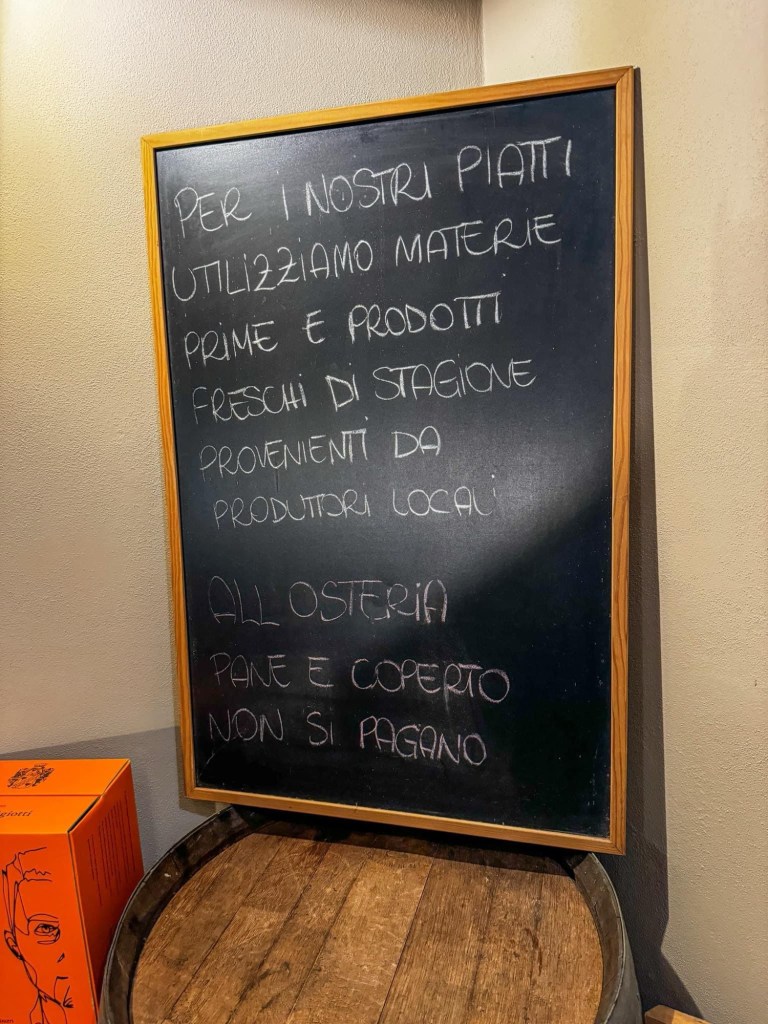 PER I NOSTRI PIATTI
UTILIZZIAMO MATERIE
PRIME E PRODOTTI
FRESCHI DI STAGIONE
PROVENIENTI DA
PRODUTTORI LOCALI
ALL OSTERIA
PANE E COPERTO
NON SI PAGANO
giotti